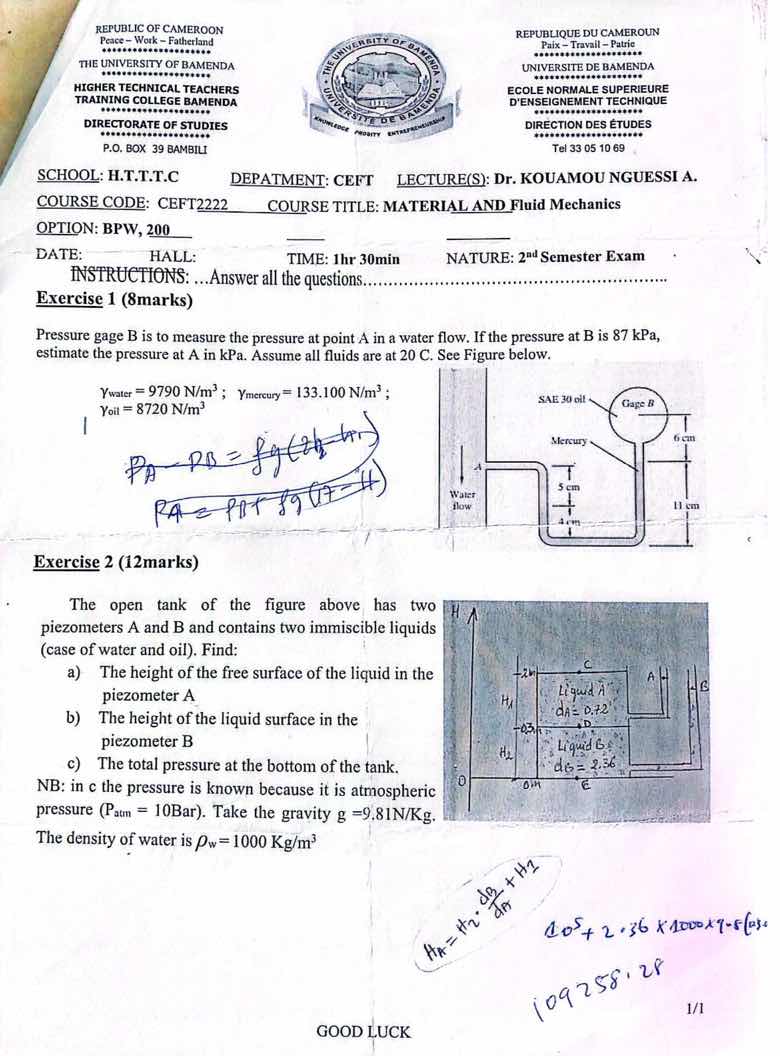 REPUBLIC OF CAMEROON
Peace – Work – Fatherland
THE UNIVERSITY OF BAMENDA
HIGHER TECHNICAL TEACHERS
TRAINING COLLEGE BAMENDA
DIRECTORATE OF STUDIES
P.O. BOX 39 BAMBILI
THE UNIVERSITY OF BAMENDA
UNIVERSITE DE BAMENDA
KNOWLEDGE PROBITY ENTREPRENEURSHIP
REPUBLIQUE DU CAMEROUN
Paix – Travail – Patrie
UNIVERSITE DE BAMENDA
ECOLE NORMALE SUPERIEURE
D'ENSEIGNEMENT TECHNIQUE
DIRECTION DES ÉTUDES
Tel 33 05 10 69
SCHOOL: H.T.T.T.C DEPATMENT: CEFT LECTURE(S): Dr. KOUAMOU NGUESSI A.
COURSE CODE: CEFT2222 COURSE TITLE: MATERIAL AND Fluid Mechanics
OPTION: BPW, 200
DATE: HALL: TIME: 1hr 30min NATURE: 2nd Semester Exam
INSTRUCTIONS: …Answer all the questions……………………………………………………
Exercise 1 (8marks)
Pressure gage B is to measure the pressure at point A in a water flow. If the pressure at B is 87 kPa,
estimate the pressure at A in kPa. Assume all fluids are at 20 C. See Figure below.
γwater = 9790 N/m³ ; γmercury = 133.100 N/m³ ;
γoil = 8720 N/m³
SAE 30 oil
Gage B
Mercury
6 cm
A
5 cm
Water
flow
11 cm
4 cm
Exercise 2 (12marks)
The open tank of the figure above has two
piezometers A and B and contains two immiscible liquids
(case of water and oil). Find:
a) The height of the free surface of the liquid in the
piezometer A
b) The height of the liquid surface in the
piezometer B
c) The total pressure at the bottom of the tank.
NB: in c the pressure is known because it is atmospheric
pressure (Patm = 10Bar). Take the gravity g =9.81N/Kg.
The density of water is ρw = 1000 Kg/m³
H
2m
C
A
B
H1
Liquid A
dA = 0.72
0.3m
D
H2
Liquid B
dB = 2.36
O
0m
E
HA = H2 · dB/dA + H1
10⁵ + 2.36 X 1000 X 9.8
109258.28
1/1
GOOD LUCK